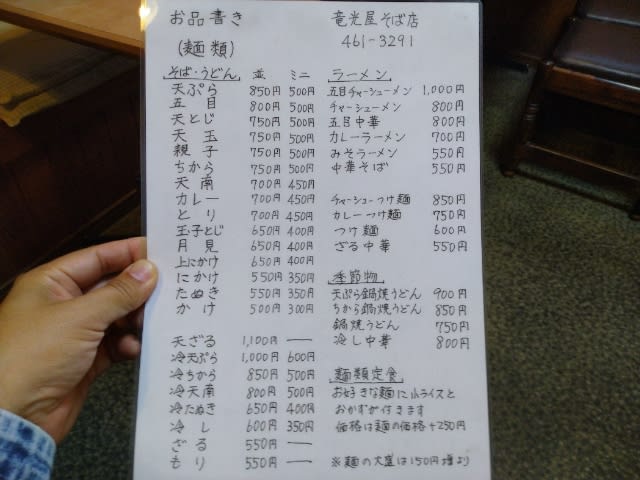 お品書き
竜光屋そば店
(麺類)
461-3291
そば・うどん 並 ミニ
天ぷら 850円 500円
五目 800円 500円
天とじ 750円 500円
天玉 750円 500円
親子 750円 500円
ちから 750円 500円
天南 700円 450円
カレー 700円 450円
とり 700円 450円
玉子とじ 650円 400円
月見 650円 400円
上にかけ 650円 400円
にかけ 550円 350円
たぬき 550円 350円
かけ 500円 300円
天ざる 1,100円 ー
冷天ぷら 1,000円 600円
冷ちから 850円 500円
冷天南 800円 500円
冷たぬき 650円 400円
冷し 600円 350円
ざる 550円 ー
もり 550円 ー
ラーメン
五目チャーシューメン 1,000円
チャーシューメン 800円
五目中華 800円
カレーラーメン 700円
みそラーメン 550円
中華そば 550円
チャーシューつけ麺 850円
カレーつけ麺 750円
つけ麺 600円
ざる中華 550円
季節物
天ぷら鍋焼うどん 900円
ちから鍋焼うどん 850円
鍋焼うどん 750円
冷し中華 800円
麺類定食
お好きな麺に小ライスと
おかずが付きます
価格は麺の価格+250円
※麺の大盛は150円増より